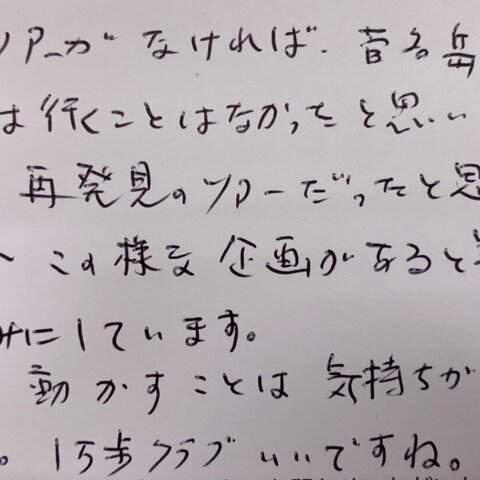 ツアーがなければ、菅名岳
は行くことはなかったと思い
再発見のツアーだったと思
この様な企画があると
みにしています。
動かすことは気持ちが
。1万歩クラブいいですね。